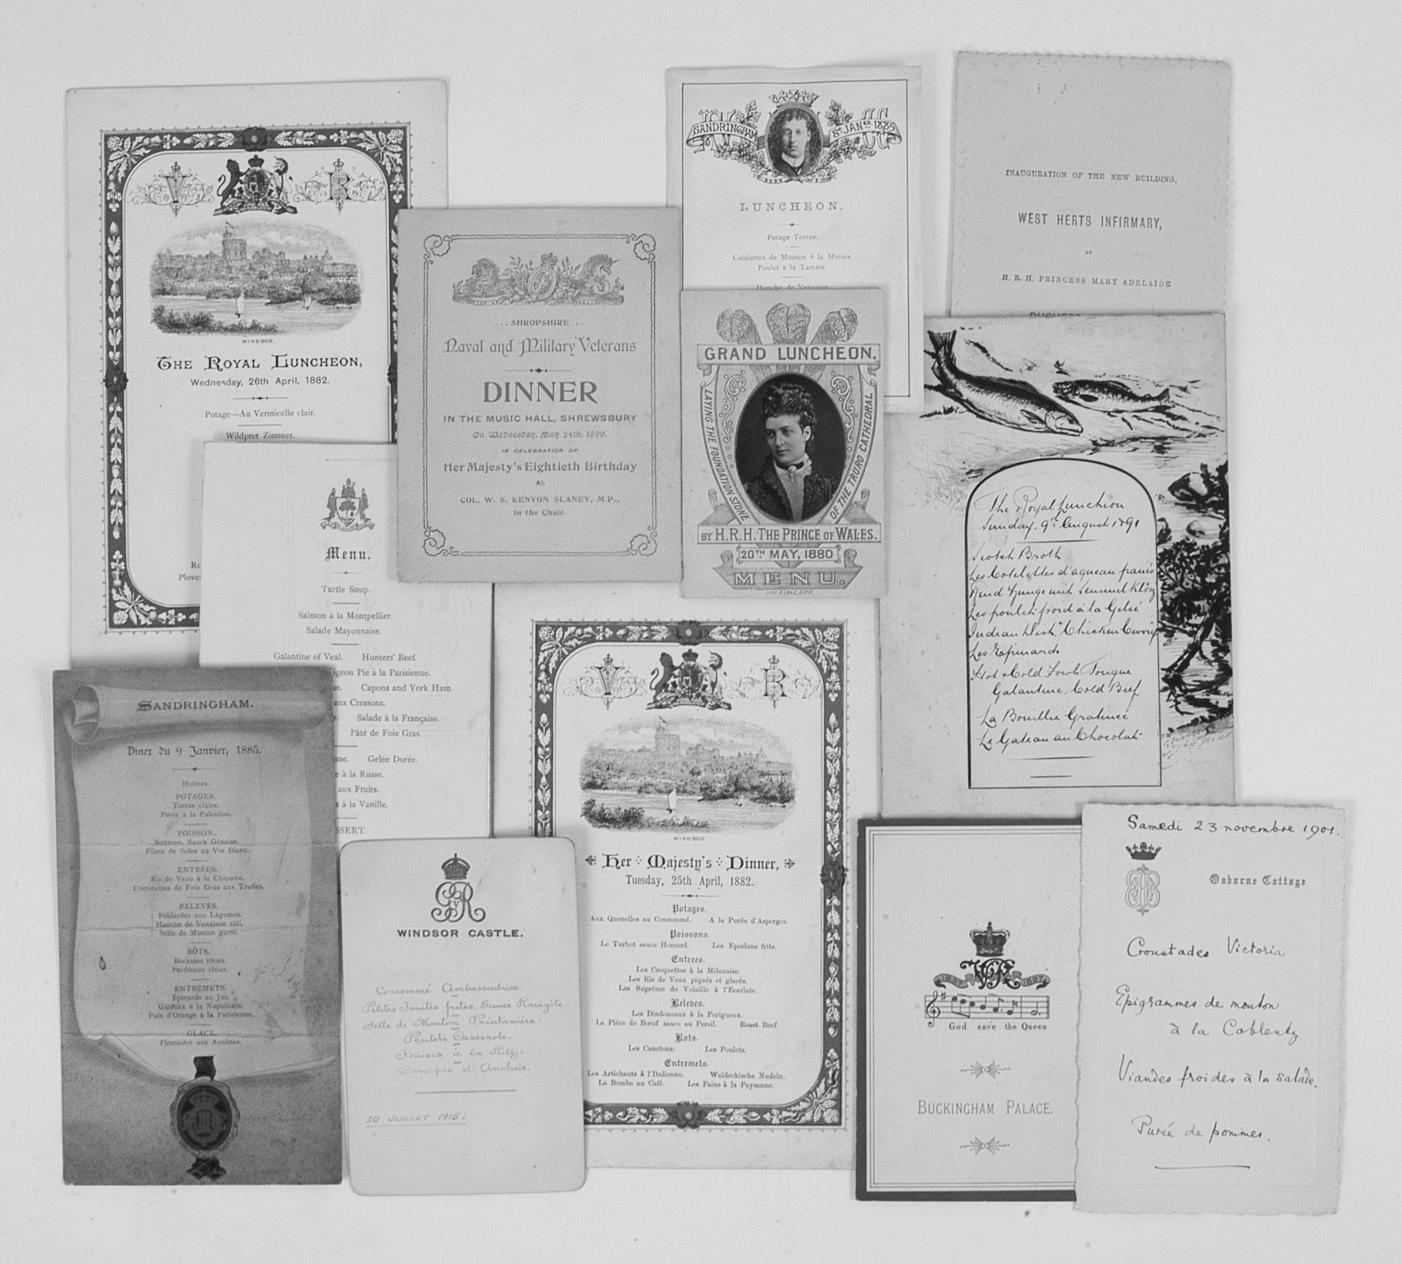 V R
WINDSOR.
THE ROYAL LUNCHEON,
Wednesday, 26th April, 1882.
Potage—Au Vermicelle clair.
Wildpret Zimmer.
Ro
Plove
... SHROPSHIRE ...
Naval and Military Veterans
DINNER
IN THE MUSIC HALL, SHREWSBURY
On Wednesday, May 24th, 1899.
IN CELEBRATION OF
Her Majesty's Eightieth Birthday
COL. W. S. KENYON SLANEY, M.P.,
In the Chair.
SANDRINGHAM 8th JANry 1885
LUNCHEON.
Potage Tortue.
Cotelettes de Mouton à la Minute.
Poulet à la Tartare.
Hanche de Venaison
INAUGURATION OF THE NEW BUILDING,
WEST HERTS INFIRMARY,
BY
H. R. H. PRINCESS MARY ADELAIDE
GRAND LUNCHEON.
LAYING THE FOUNDATION STONE
OF THE TRURO CATHEDRAL
BY H.R.H. THE PRINCE OF WALES.
20TH MAY, 1880
MENU.
The Royal Luncheon
Sunday, 9th August 1891
Scotch Broth
Les Cotelettes d'agneau panés
Les poulet froid à la Gelée
Indian Dish "Chicken Curry
Les Epinards
Hot & Cold Fowls Tongue
Galantine, Cold Beef
La Bouillie Gratinée
Le Gateau au Chocolat
Menu.
Turtle Soup.
Salmon à la Montpellier.
Salade Mayonnaise.
Galantine of Veal. Hunters' Beef.
geon Pie à la Parisienne.
e. Capons and York Ham.
aux Cressons.
r. Salade à la Française.
Pâté de Foie Gras.
ne. Gelée Dorée.
e à la Russe.
aux Fruits.
à la Vanille.
SSERT.
SANDRINGHAM.
Diner du 9 Janvier, 1885.
Huîtres.
POTAGES.
Tortue claire.
Purée à la Palestine.
POISSON.
Saumon, Sauce Génoise.
Filets de Soles au Vin Blanc.
ENTRÉES.
Ris de Veau à la Chicorée.
Crepinettes de Foie Gras aux Truffes.
RELEVÉS.
Poulardes aux Légumes.
Hanche de Venaison rôti.
Selle de Mouton garni.
RÔTS.
Bécasses rôties.
Perdreaux rôties.
ENTREMETS.
Epinards au Jus.
Gâteaux à la Napolitain.
Pain d'Orange à la Parisienne.
GLACE.
Plombière aux Avelines.
WINDSOR CASTLE.
Consommé Ambassadrice.
Petites Truites frites,
Selle de Mouton Printanière.
Poulets Casserole.
Fraises à la Ritz.
Canapés d'Anchois.
20 JUILLET 1915.
V R
WINDSOR.
Her Majesty's Dinner,
Tuesday, 25th April, 1882.
Potages.
Aux Quenelles au Consommé. A la Purée d'Asperges.
Poissons.
Le Turbot sauce Homard. Les Eperlans frits.
Entrees.
Les Croquettes à la Milanaise.
Les Ris de Veau piqués et glacés.
Les Suprême de Volaille à l'Ecarlate.
Releves.
Les Dindoneaux à la Perigueux.
La Pièce de Bœuf sauce au Persil. Roast Beef.
Rots.
Les Canetons. Les Poulets.
Entremets.
Les Artichauts à l'Italienne. Waldeckische Nudeln.
La Bombe au Café. Les Pains à la Paysanne.
God save the Queen
BUCKINGHAM PALACE.
Samedi 23 novembre 1901.
Osborne Cottage
Croustades Victoria
Epigrammes de mouton
à la Coblentz
Viandes froides à la Salade.
Purée de pommes.